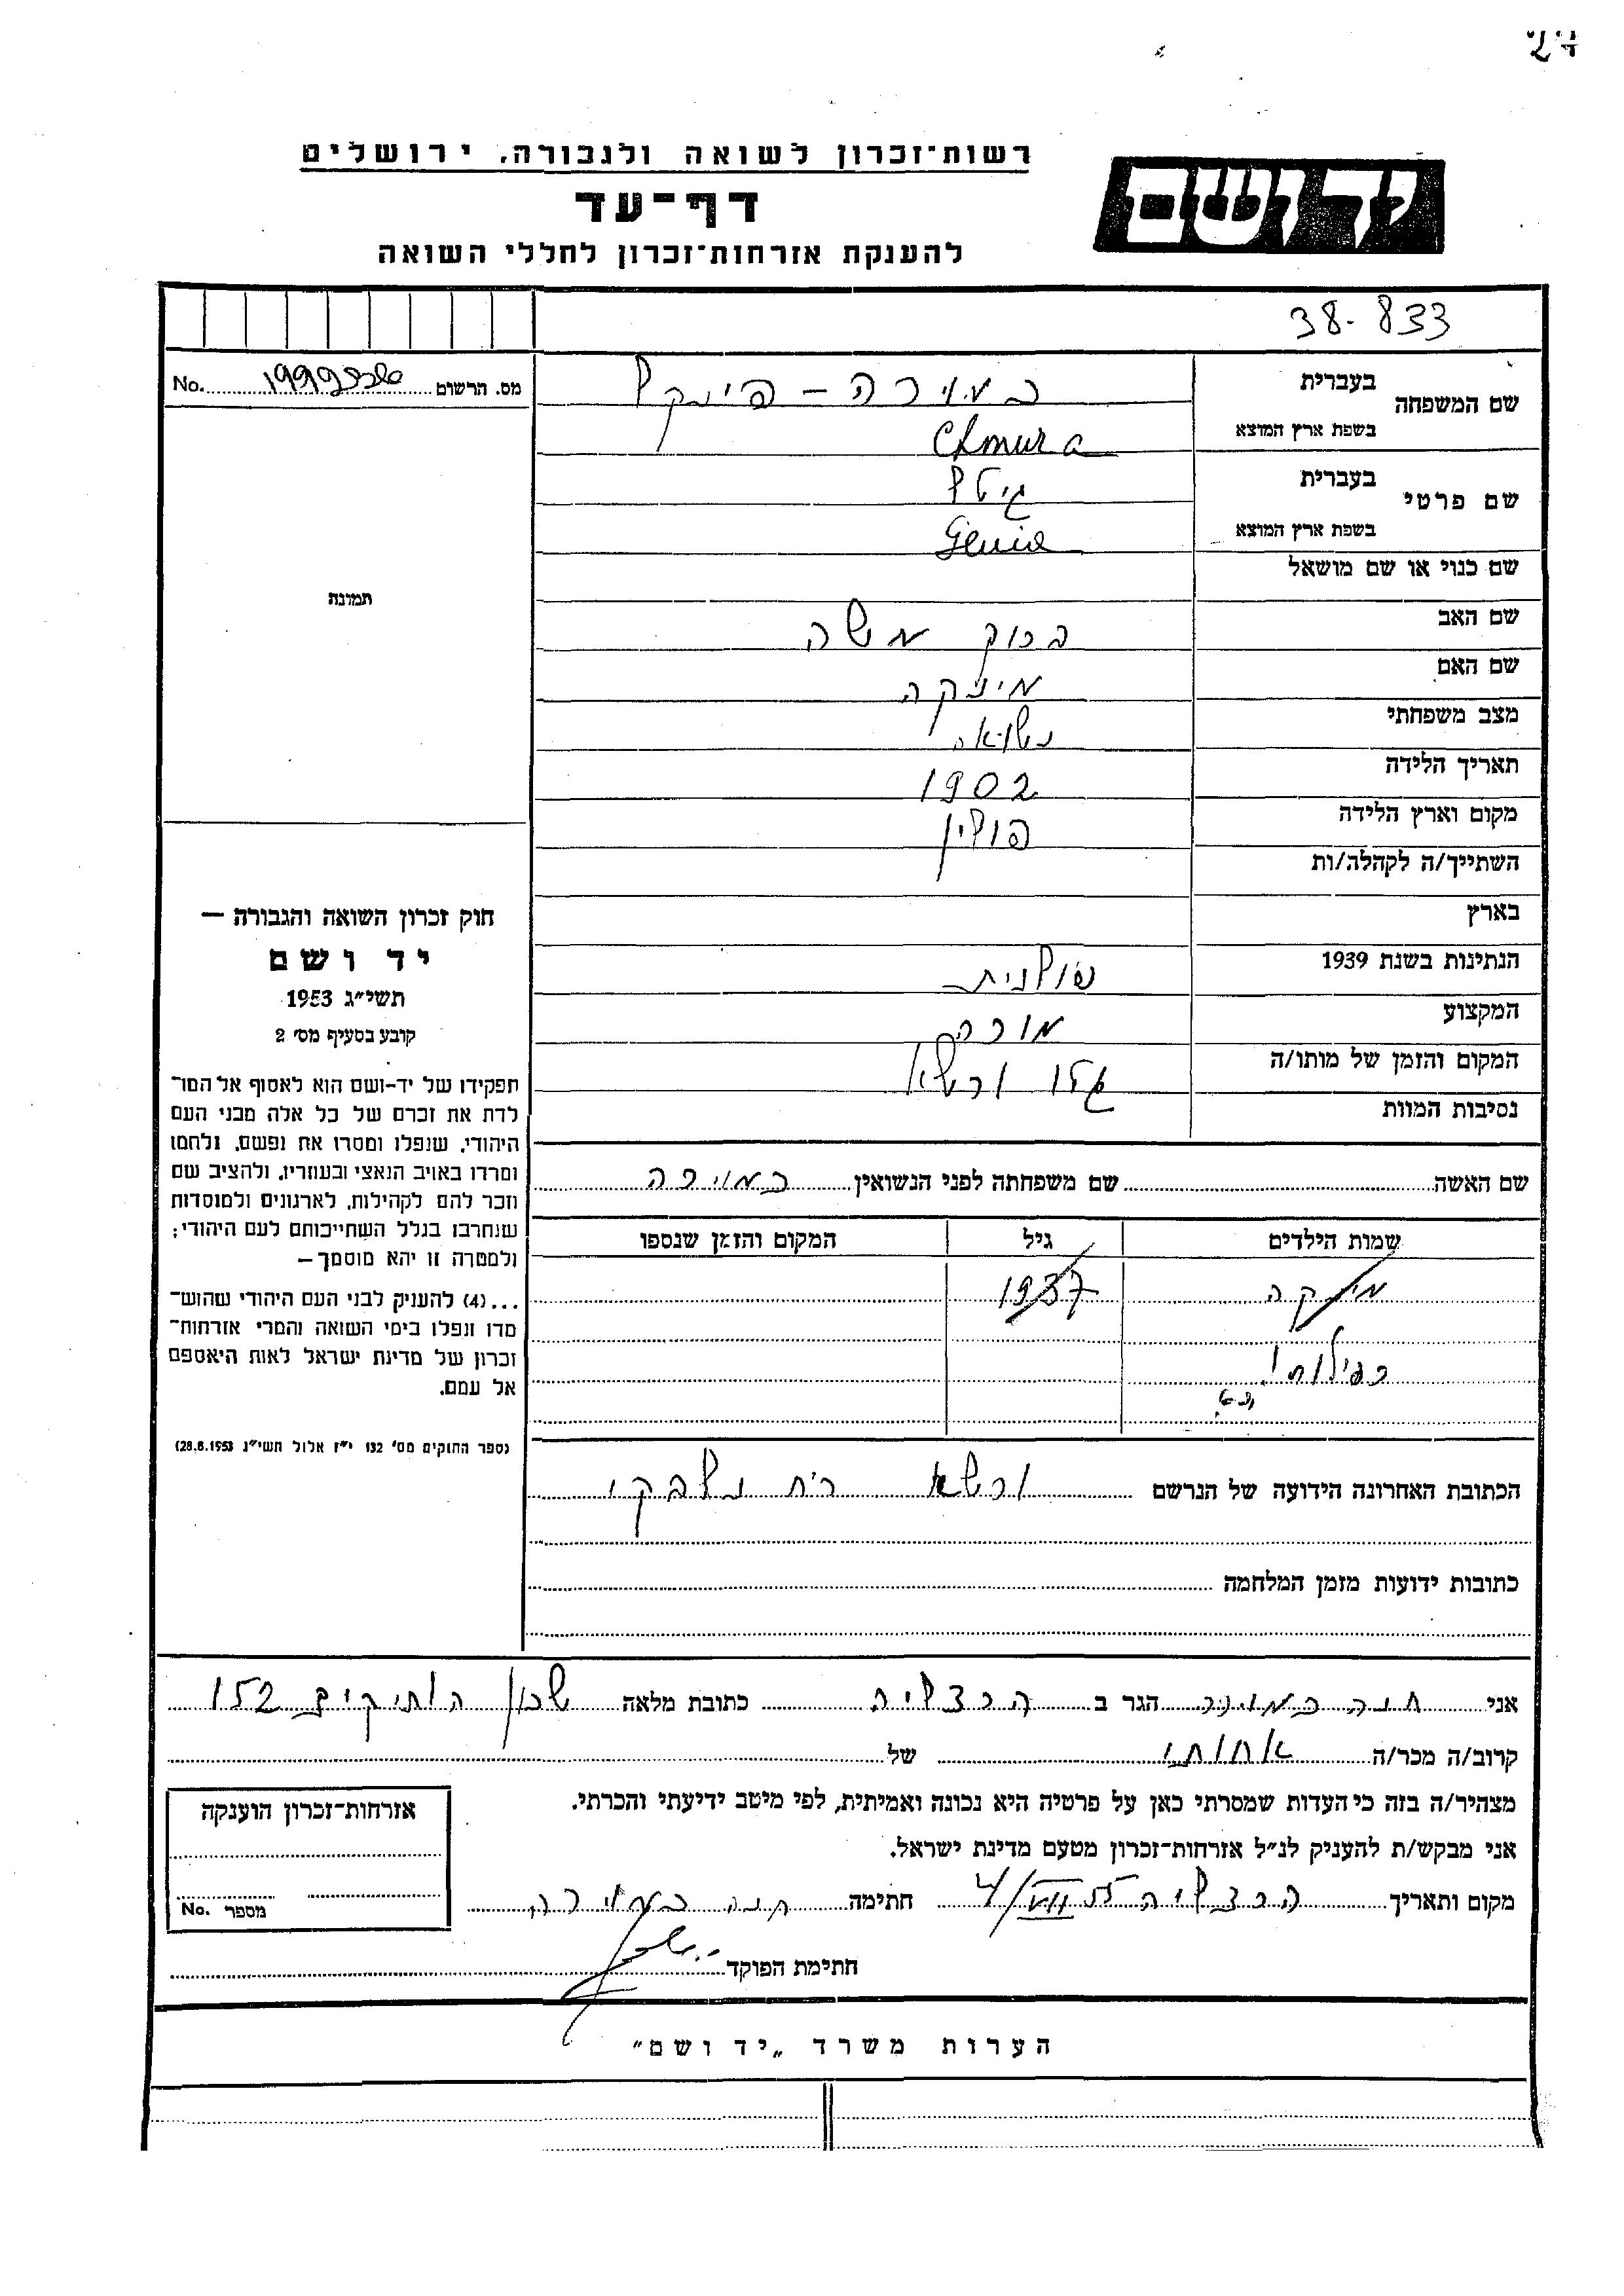 רשות־זכרון לשואה ולגבורה, ירושלים
יד ושם
דף־עד
להענקת אזרחות־זכרון לחללי השואה
38-833
שם המשפחה בעברית כמוירה - פינקל
בשפת ארץ המוצא Chmura
שם פרטי בעברית גיטל
בשפת ארץ המוצא Genia
שם כנוי או שם מושאל
שם האב משה
שם האם מינקה
מצב משפחתי נשואה
תאריך הלידה 1902
מקום וארץ הלידה פולין
השתייך/ה לקהלה/ות
בארץ
הנתינות בשנת 1939 פולנית
המקצוע מורה
המקום והזמן של מותו/ה גטו ורשא
נסיבות המוות
שם האשה שם משפחתה לפני הנשואין כמוירה
שמות הילדים גיל המקום והזמן שנספו
מינקה 1937
הכתובת האחרונה הידועה של הנרשם ורשא רח
כתובות ידועות מזמן המלחמה
מס. הרשום No.
תמונה
חוק זכרון השואה והגבורה —
יד ושם
תשי"ג 1953
קובע בסעיף מס' 2
תפקידו של יד-ושם הוא לאסוף אל המו־
לדת את זכרם של כל אלה מבני העם
היהודי, שנפלו ומסרו את נפשם, נלחמו
ומרדו באויב הנאצי ובעוזריו, ולהציב שם
וזכר להם לקהילות, לארגונים ולמוסדות
שנחרבו בגלל השתייכותם לעם היהודי;
ולמטרה זו יהא מוסמך—
...(4) להעניק לבני העם היהודי שהוש־
מדו ונפלו בימי השואה והמרי אזרחות־
זכרון של מדינת ישראל לאות היאספם
אל עמם.
(ספר החוקים מס' 132 י"ז אלול תשי"ג 28.8.1953)
אני חנה כמוירה הגר ב הרצליה כתובת מלאה שכון הותיקים 152
קרוב/ה מכר/ה אחותי של
מצהיר/ה בזה כי העדות שמסרתי כאן על פרטיה היא נכונה ואמיתית, לפי מיטב ידיעתי והכרתי.
אני מבקש/ת להעניק לנ"ל אזרחות־זכרון מטעם מדינת ישראל.
מקום ותאריך הרצליה 4/VII 55 חתימה חנה כמוירה
חתימת הפוקד
אזרחות־זכרון הוענקה
מספר No.
הערות משרד „יד ושם"